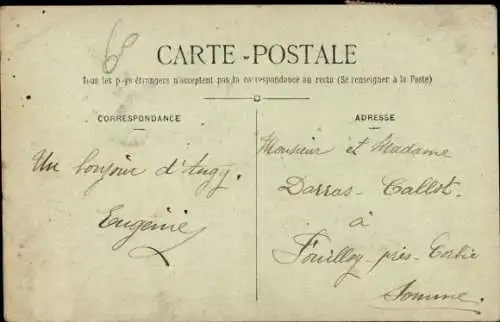 60
CARTE-POSTALE
Tous les pays étrangers n'acceptent pas la correspondance au recto (Se renseigner à la Poste)
CORRESPONDANCE
ADRESSE
Un bonjour d'Augy.
Eugénie
Monsieur et Madame
Darras-Callot.
à
Fouilloy-près-Corbie
Somme.